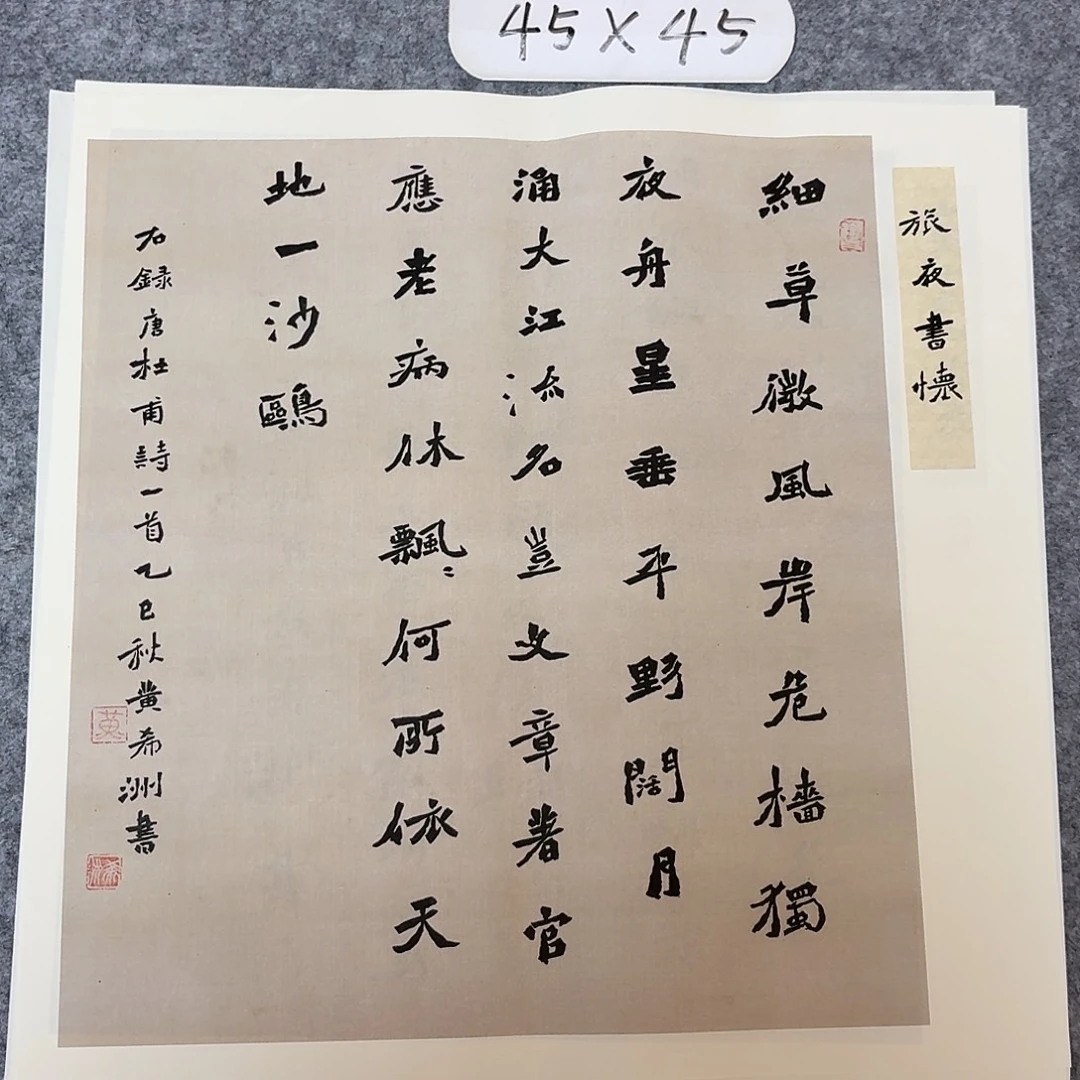 45×45
旅夜書懷
細草微風岸危檣獨
夜舟星垂平野闊月
涌大江流名豈文章著官
應老病休飄〻何所依天
地一沙鷗
右錄唐杜甫詩一首乙巳秋黃希洲書
黃